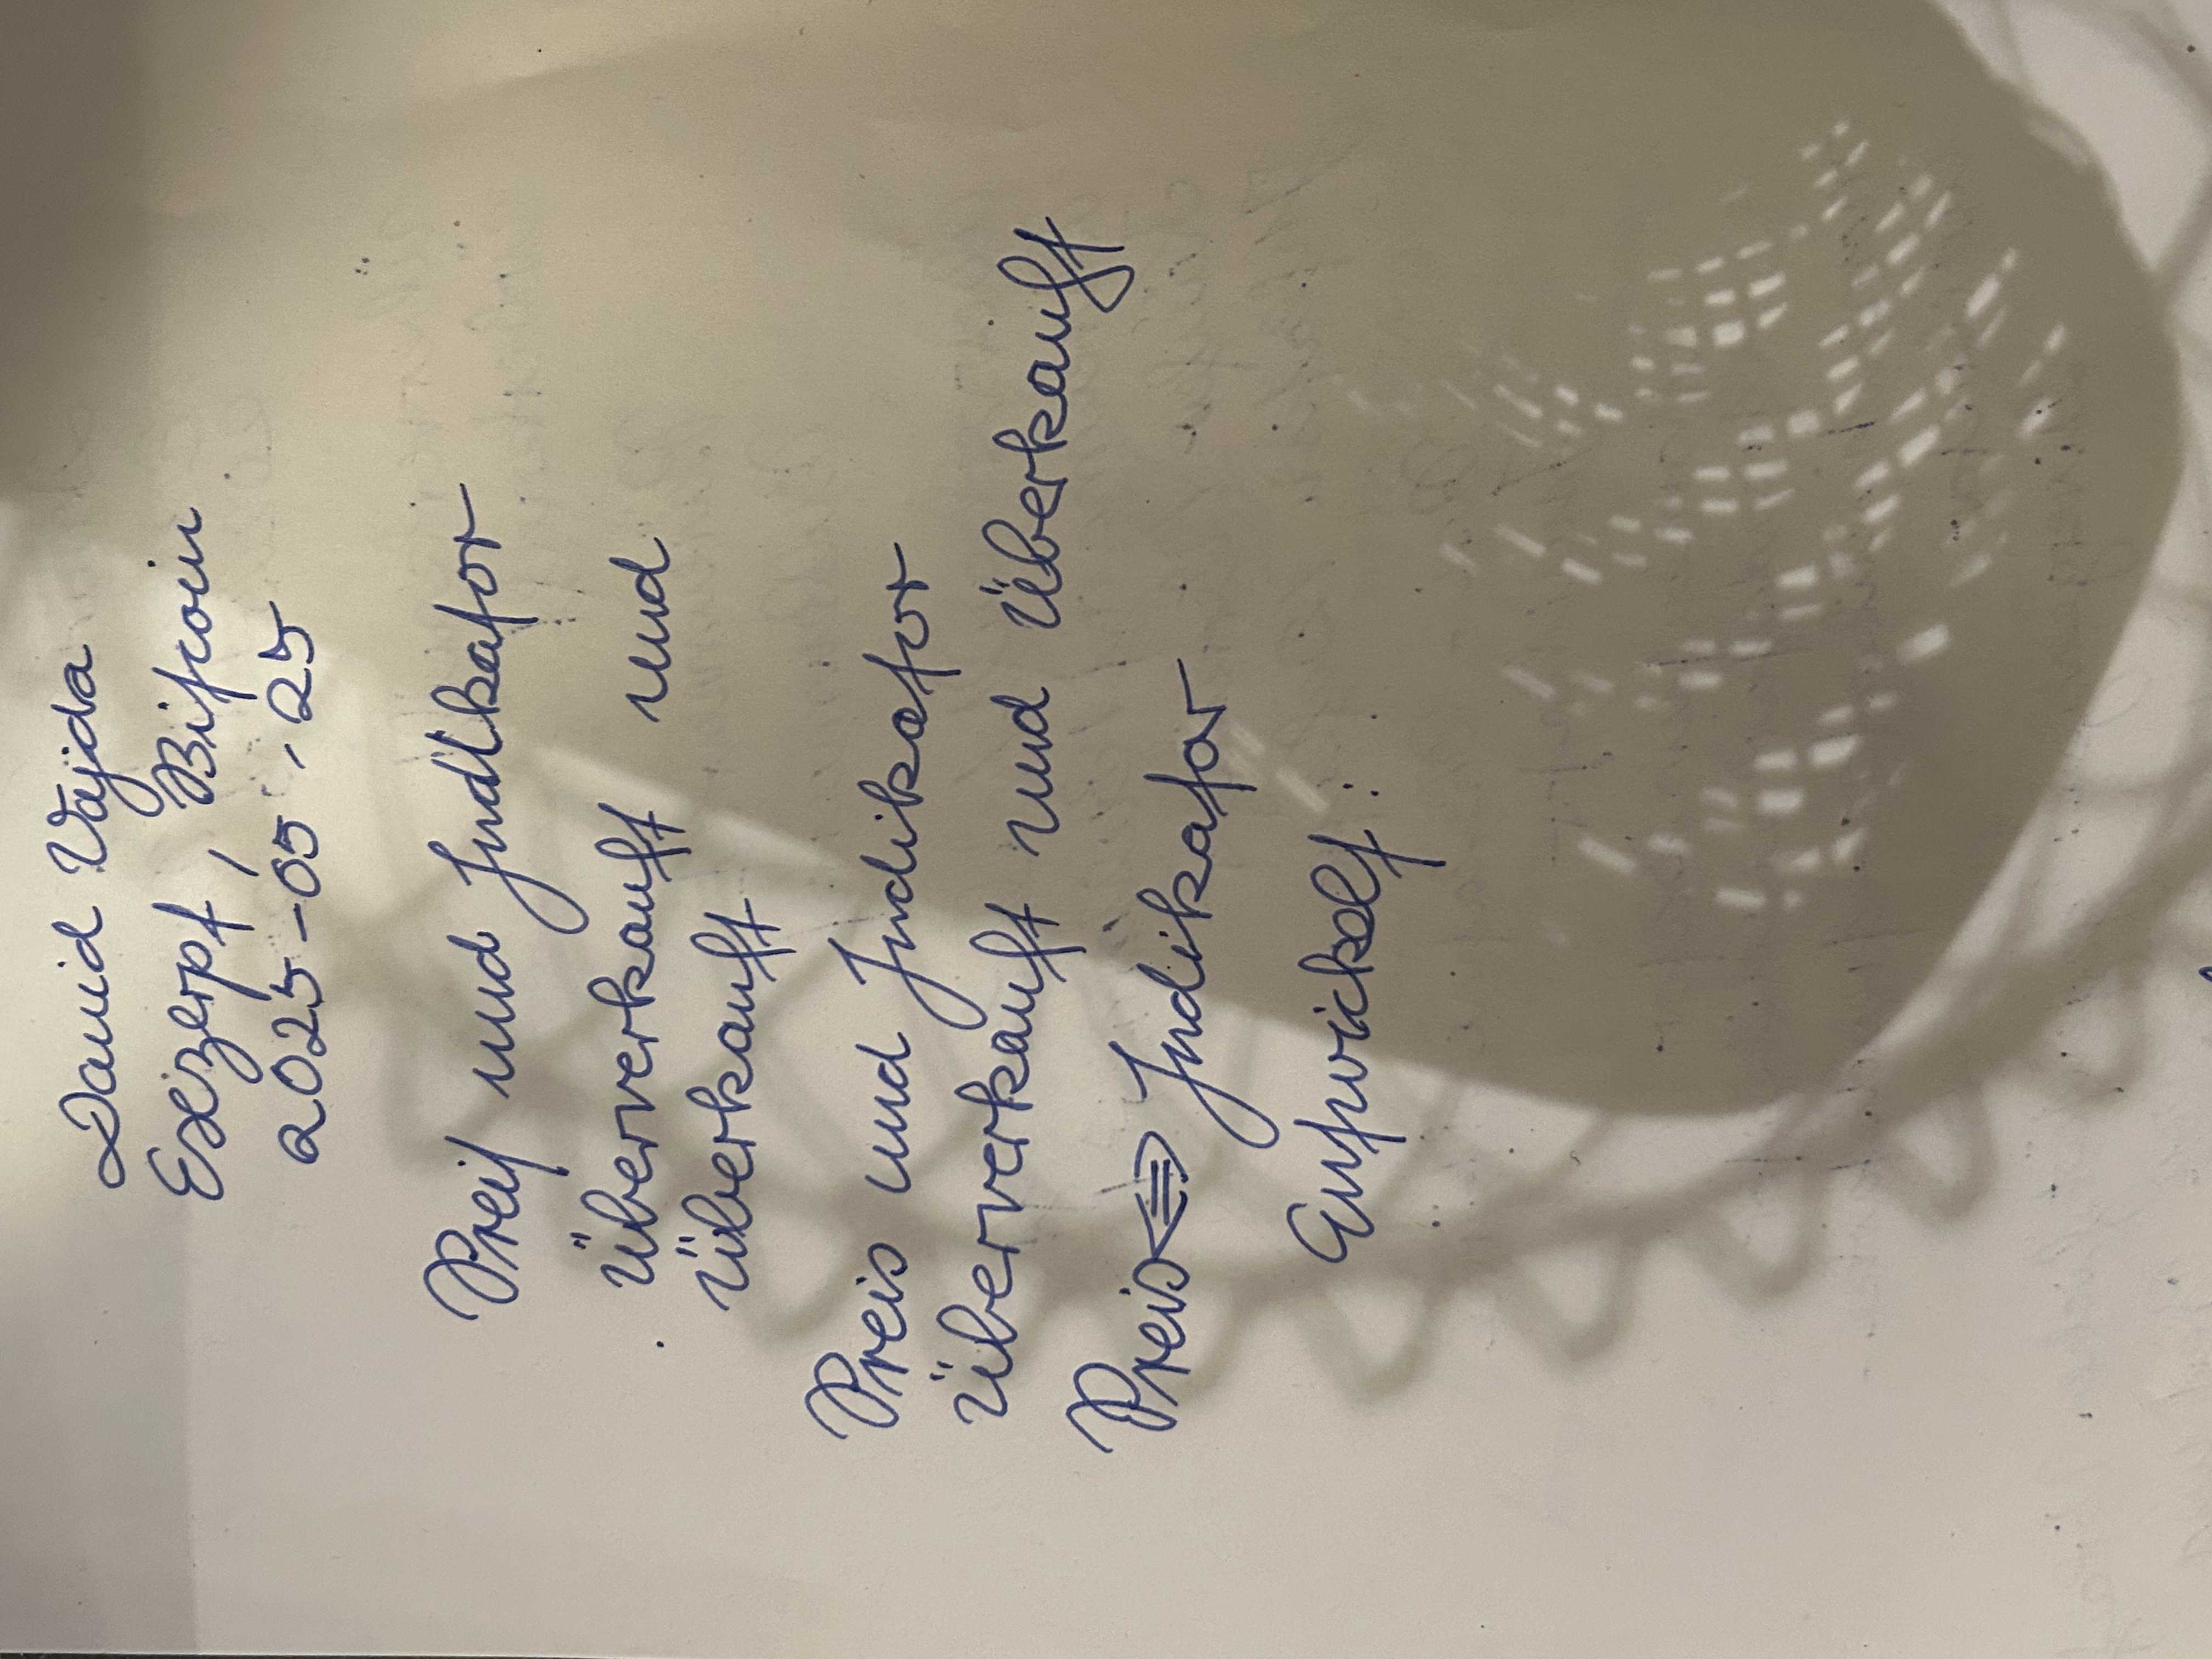 David Vajda
Exzerpt, Bitcoin
2025-05-25
Preis und Indikator
überverkauft und
überkauft
Preis und Indikator
überverkauft und überkauft
Preis <=> Indikator
Entwickelt: